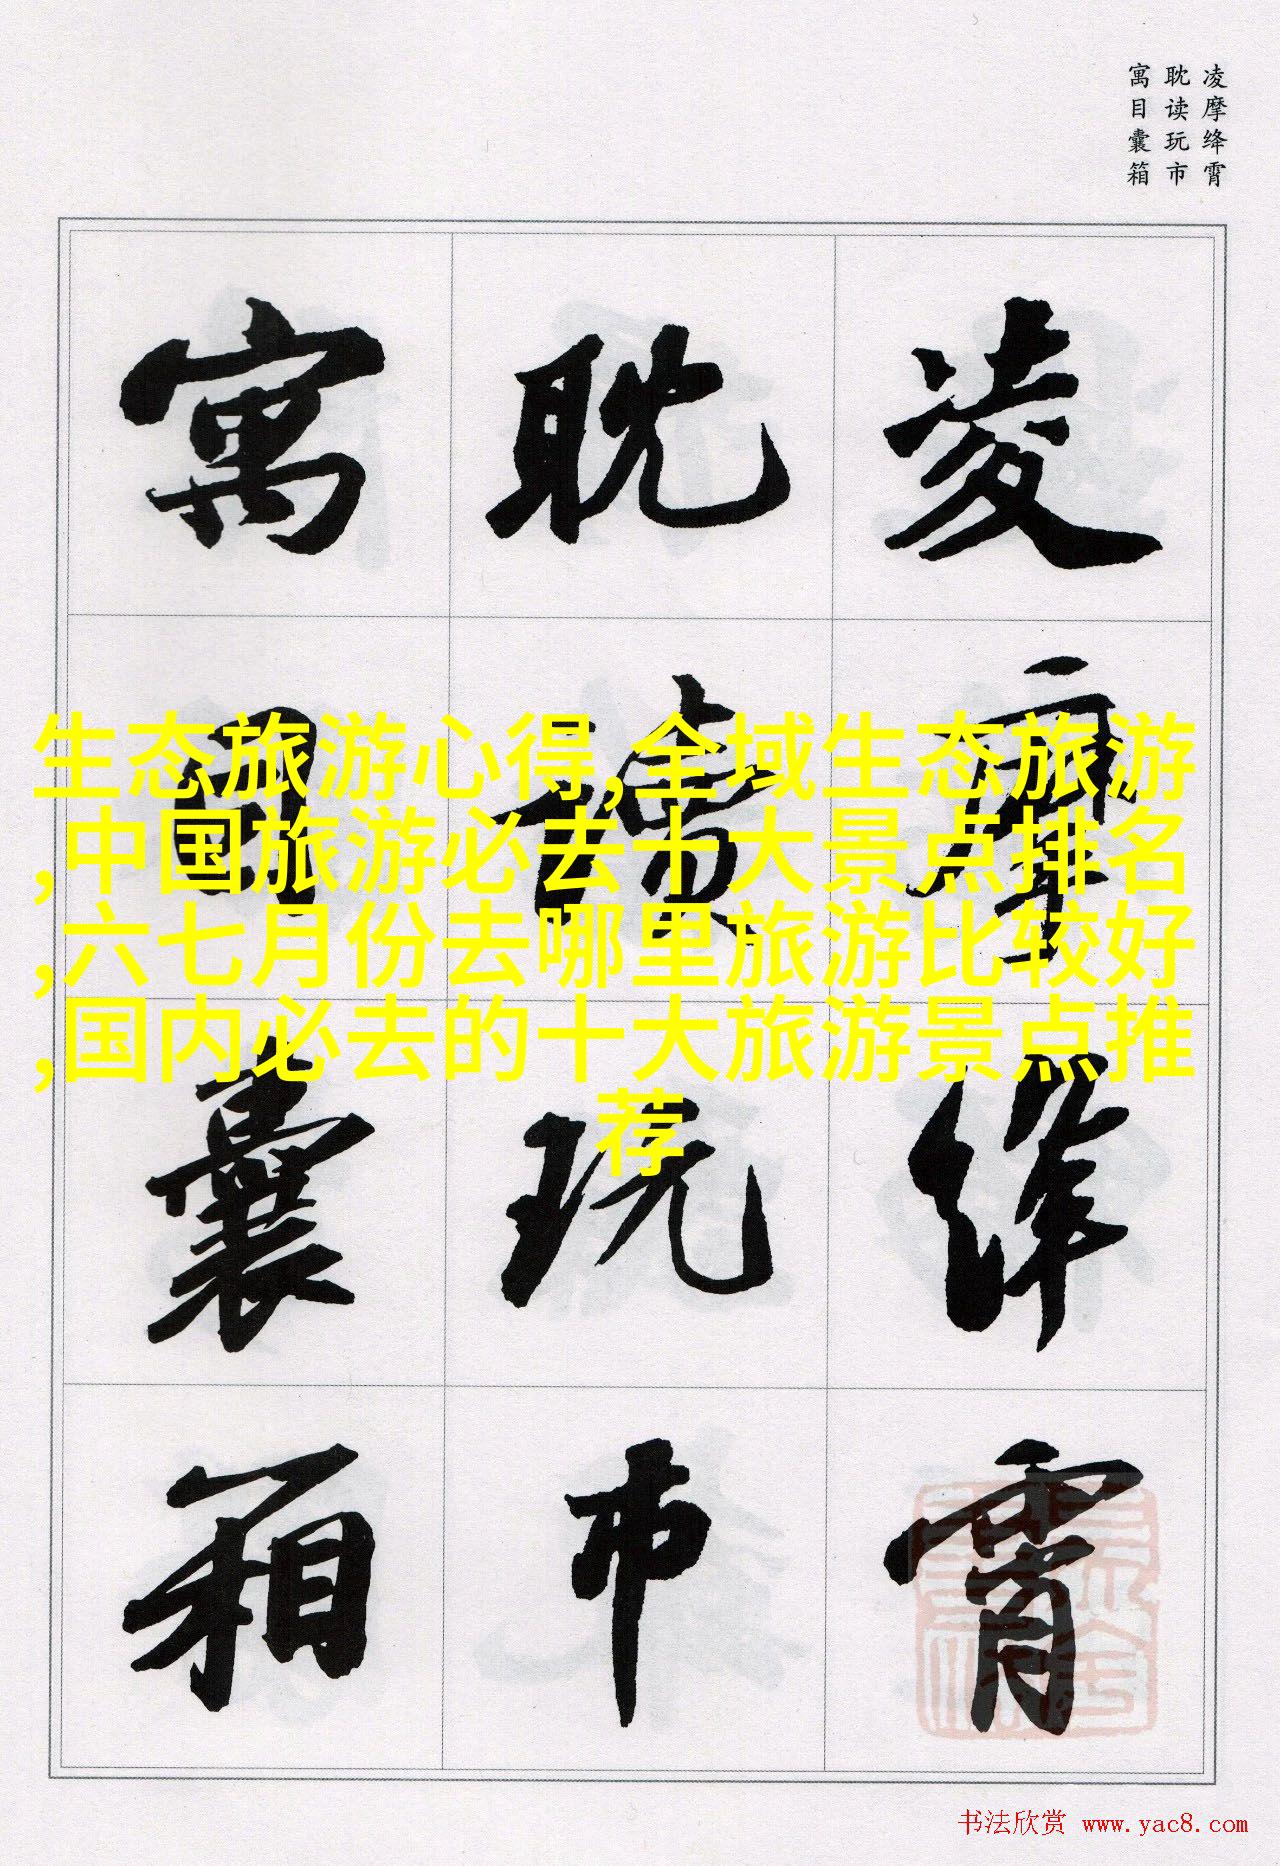 凌摩绛霄
耽读玩市
寓目囊箱
凌摩绛霄
耽读玩市
寓目囊箱
生态旅游心得,全域生态旅游
,中国旅游必去十大景点排名
,六七月份去哪里旅游比较好
,国内必去的十大旅游景点推
荐
书法欣赏 www.yac8.com